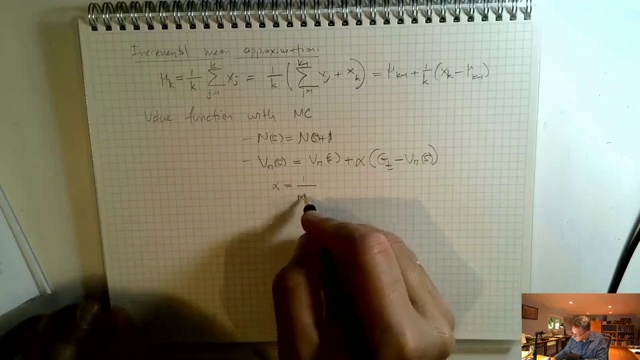 Incremental mean approximation:
μ_k = 1/k ∑_{j=1}^{k} x_j = 1/k ( ∑_{j=1}^{k-1} x_j + x_k ) = μ_{k-1} + 1/k (x_k - μ_{k-1})
Value function with MC
- N(s) = N(s)+1
- V_π(s) = V_π(s) + α (G_t - V_π(s))
α = 1/N